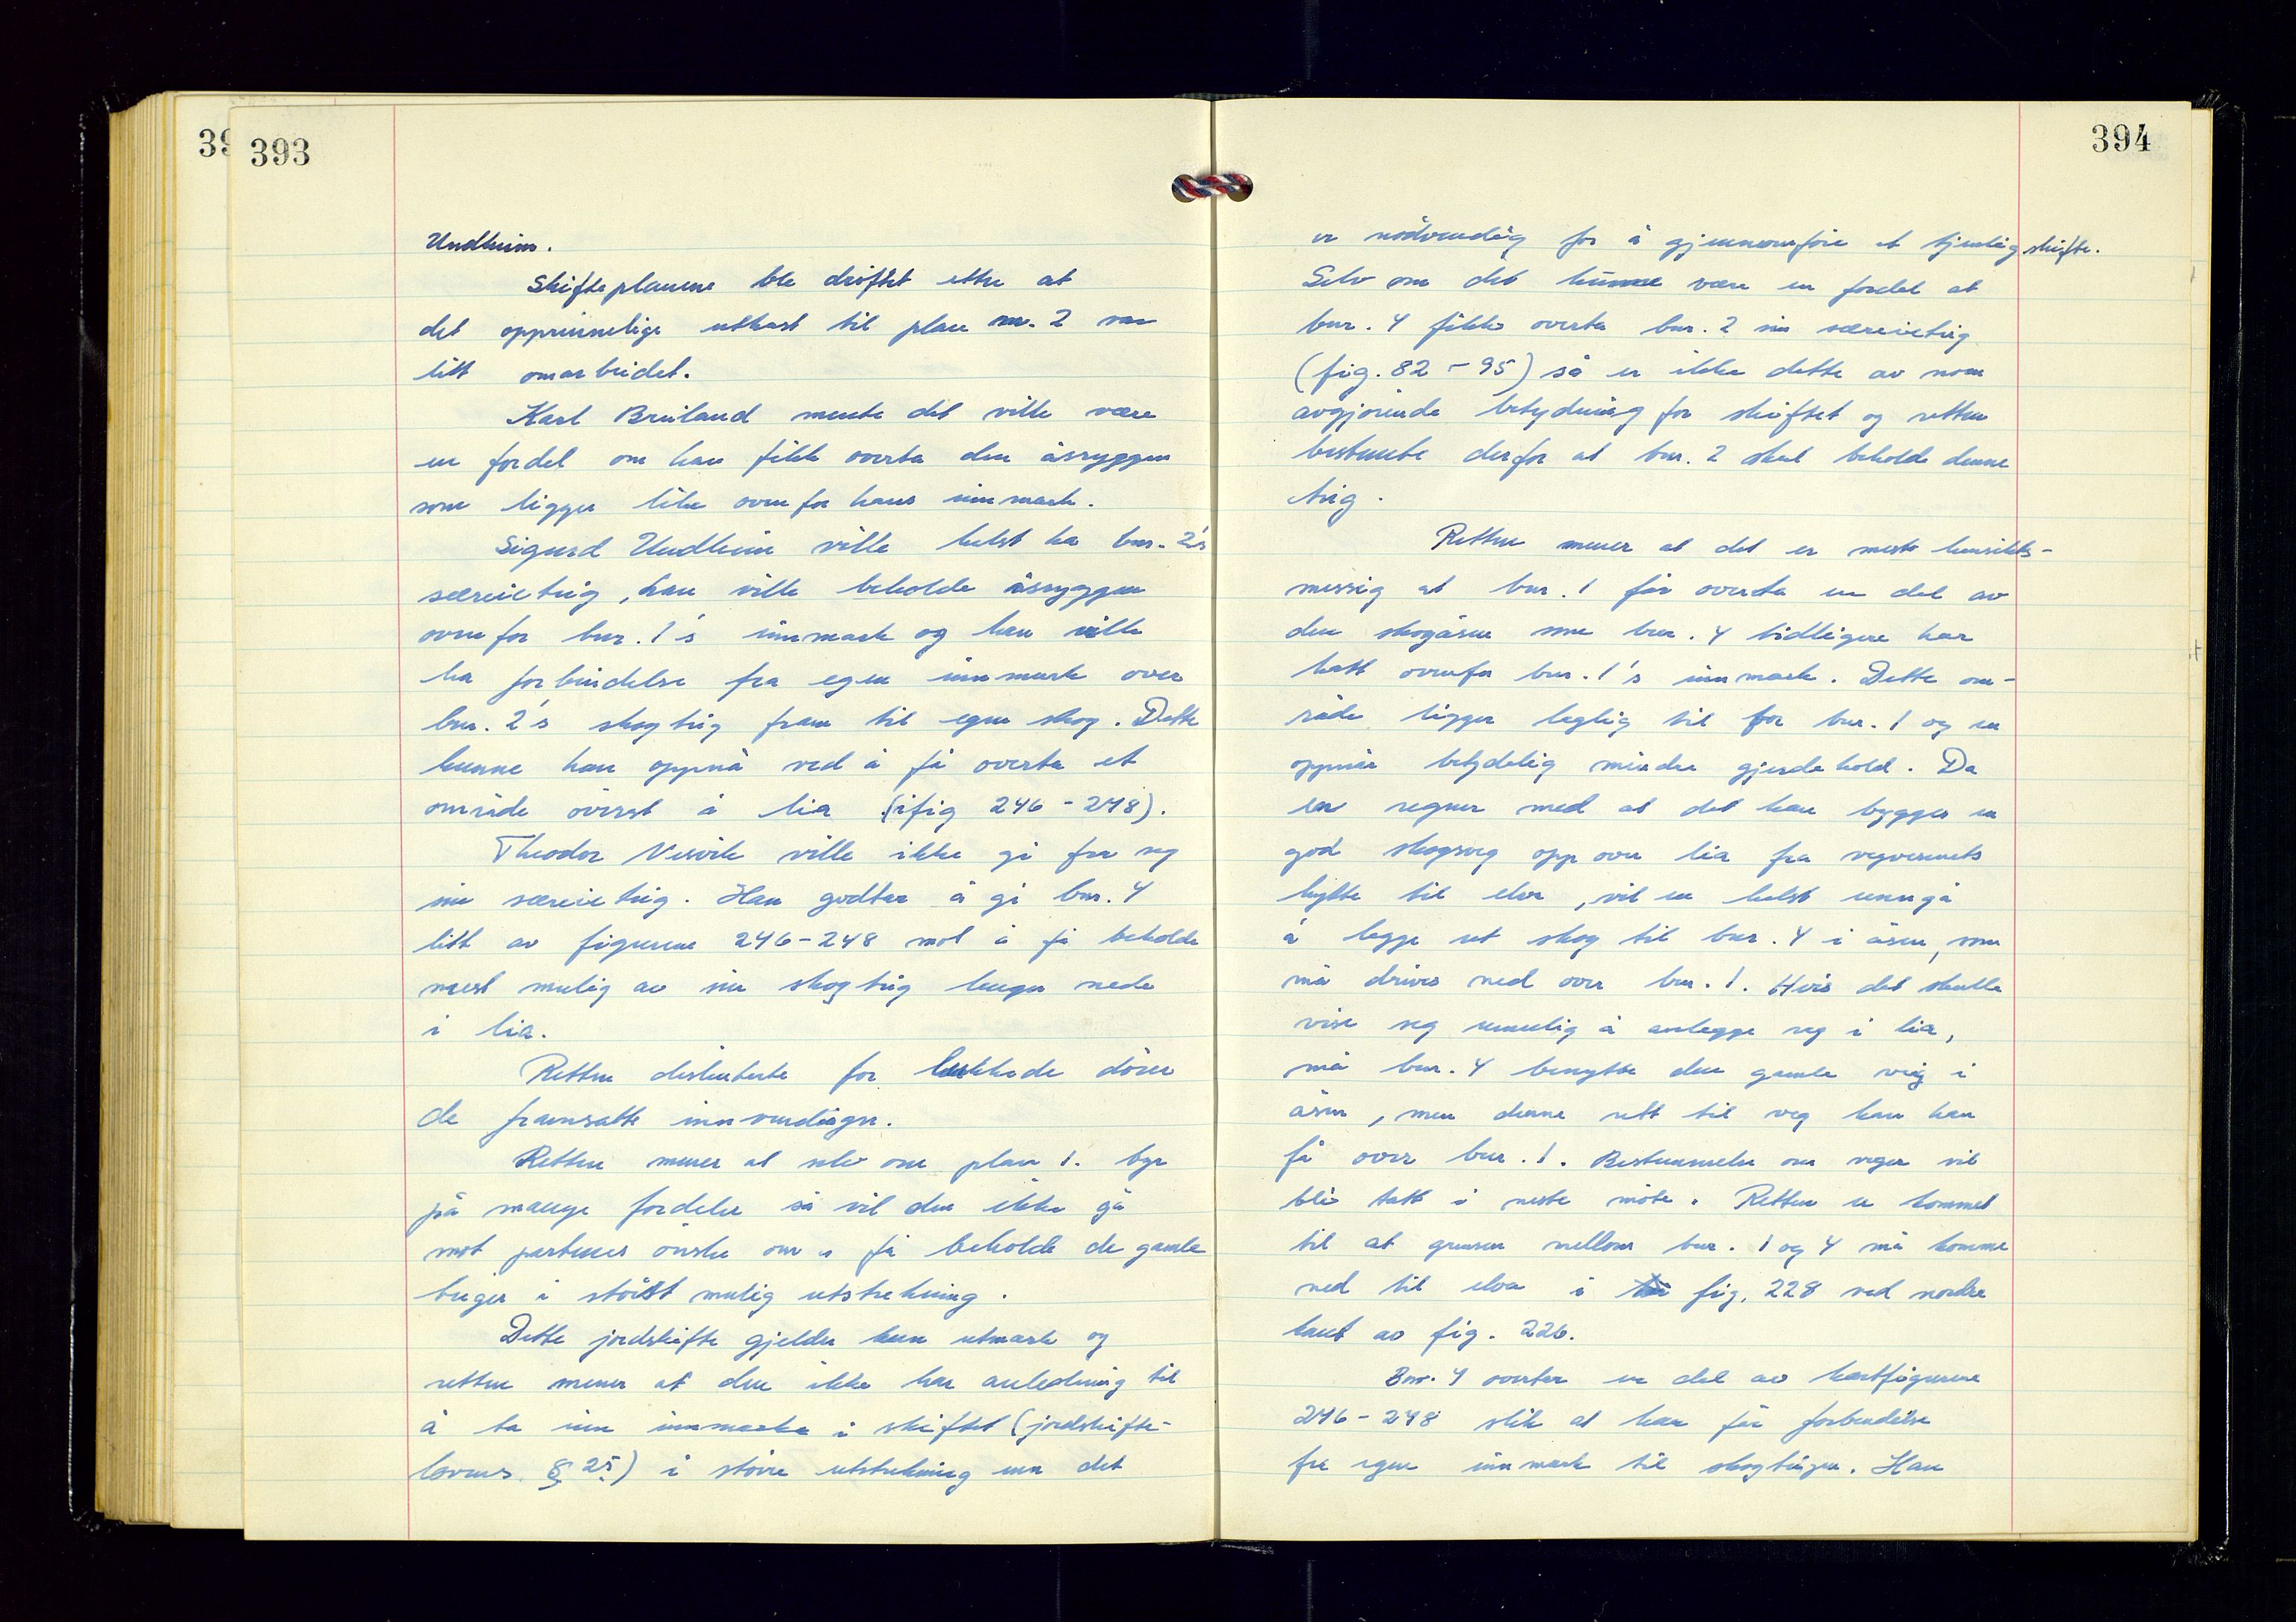 39
393
Undheim.
Skifteplanene ble drøftet etter at
det opprinnelige utkast til plan nr. 2 var
litt omarbeidet.
Karl Breiland mente det ville være
en fordel om han fikk overta den åsryggen
som ligger like ovenfor hans innmark.
Sigurd Undheim ville helst ha bnr. 2's
særeieteig, han ville beholde åsryggen
ovenfor bnr. 1's innmark og han ville
ha forbindelse fra egen innmark over
bnr. 2's skogteig fram til egen skog. Dette
kunne han oppnå ved å få overta et
område øverst i lia (ifig 246-248).
Theodor Nesvik ville ikke gi fra seg
sin særeieteig. Han godtar å gi bnr. 4
litt av figurene 246-248 mot å få beholde
mest mulig av sin skogteig lenger nede
i lia.
Retten diskuterte for lukkede dører
de framsatte innvendinger.
Retten mener at selv om plan 1. byr
på mange fordeler så vil den ikke gå
mot partenes ønske om å få beholde de gamle
teiger i størst mulig utstrekning.
Dette jordskifte gjelder kun utmark og
retten mener at den ikke har anledning til
å ta inn innmarka i skiftet (jordskifte-
lovens § 25) i større utstrekning enn det
394
er nødvendig for å gjennomføre et tjenlig skifte.
Selv om det kunne være en fordel at
bnr. 4 fikk overta bnr. 2 sin særeieteig
(fig. 82-95) så er ikke dette av noen
avgjørende betydning for skiftet og retten
bestemte derfor at bnr. 2 skal beholde denne
teig.
Retten mener at det er mest hensikts-
messig at bnr. 1 får overta en del av
den skogåsen som bnr. 4 tidligere har
hatt ovenfor bnr. 1's innmark. Dette om-
råde ligger laglig til for bnr. 1 og en
oppnår betydelig mindre gjerdehold. Da
en regner med at det kan bygges en
god skogsveg oppover lia fra vegvesenets
hytte til elva, vil en helst unngå
å legge ut skog til bnr. 4 i åsen, som
må drives ned over bnr. 1. Hvis det skulle
vise seg umulig å anlegge veg i lia,
må bnr. 4 benytte den gamle veg i
åsen, men denne rett til veg kan han
få over bnr. 1. Bestemmelse om veger vil
bli tatt i neste møte. Retten er kommet
til at grensen mellom bnr. 1 og 4 må komme
ned til elva i fig. 228 ved nordre
kant av fig. 226.
Bnr. 4 overtar en del av kartfigurene
246-248 slik at han får forbindelse
fra egen innmark til skogteigen. Han